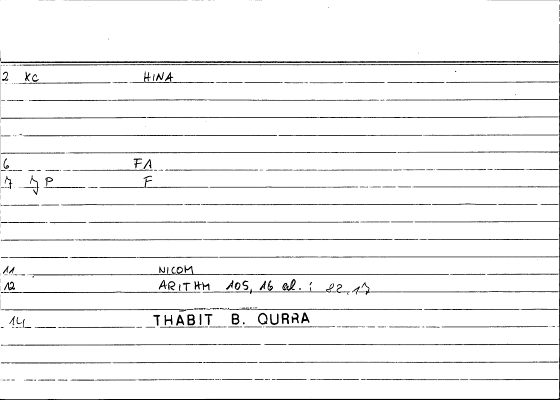 2 KC HINA
6 FA
7 JP F
11 NICOM
12 ARITHM 105, 16 al. : 82.17
14 THABIT B. QURRA